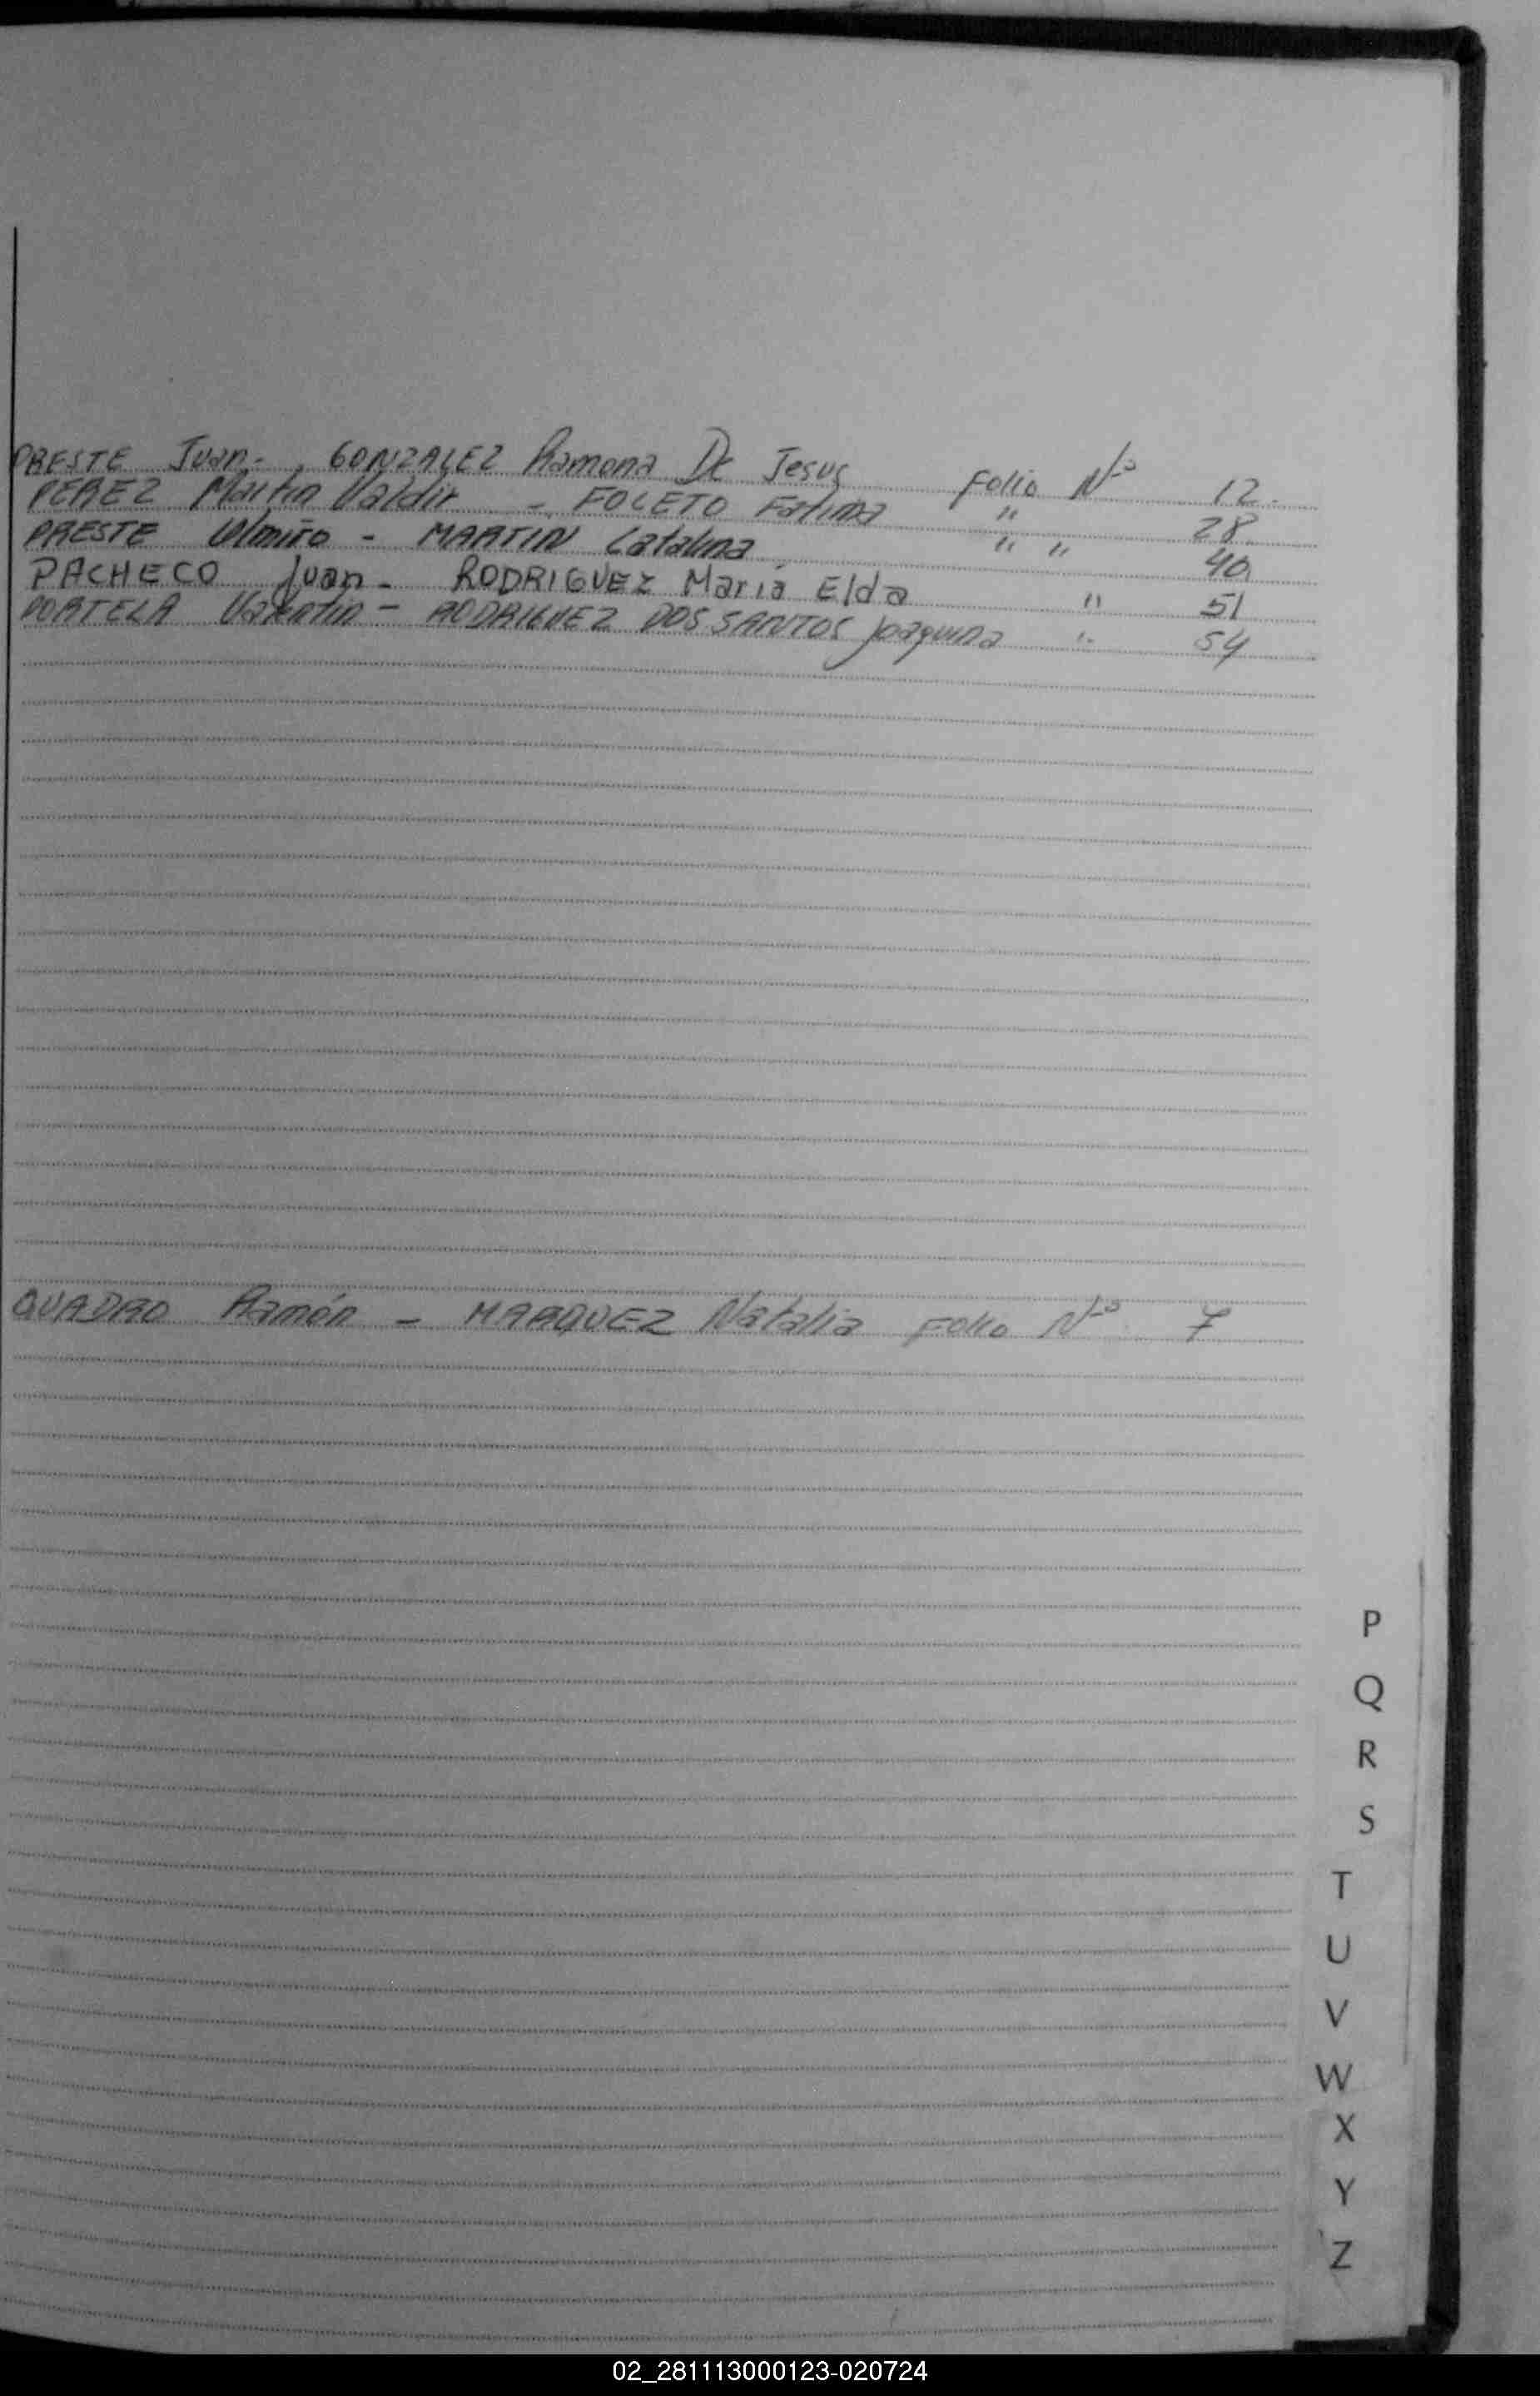 PRESTE Juan - GONZALEZ Ramona De Jesus Folio Nº 12.
PEREZ Martin Valdir - FOLETO Fatima " 28.
PRESTE Ulmiro - MARTIN Catalina " " 40.
PACHECO Juan - RODRIGUEZ María Elda " 51
PORTELA Valentin - RODRIGUEZ DOS SANTOS Joaquina " 54
QUADRO Ramón - MARQUEZ Natalia Folio Nº 7
P
Q
R
S
T
U
V
W
X
Y
Z
02_281113000123-020724